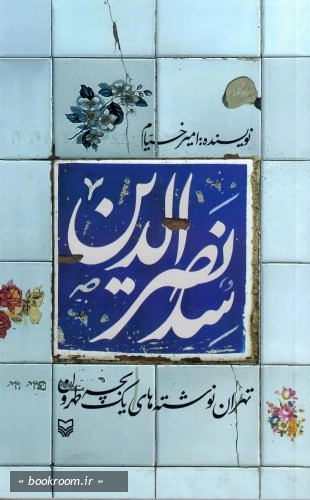 نویسنده: امیر خیام
سد نصرالدین
تهران نوشته‌های یک بچه طهرون
« bookroom.ir »